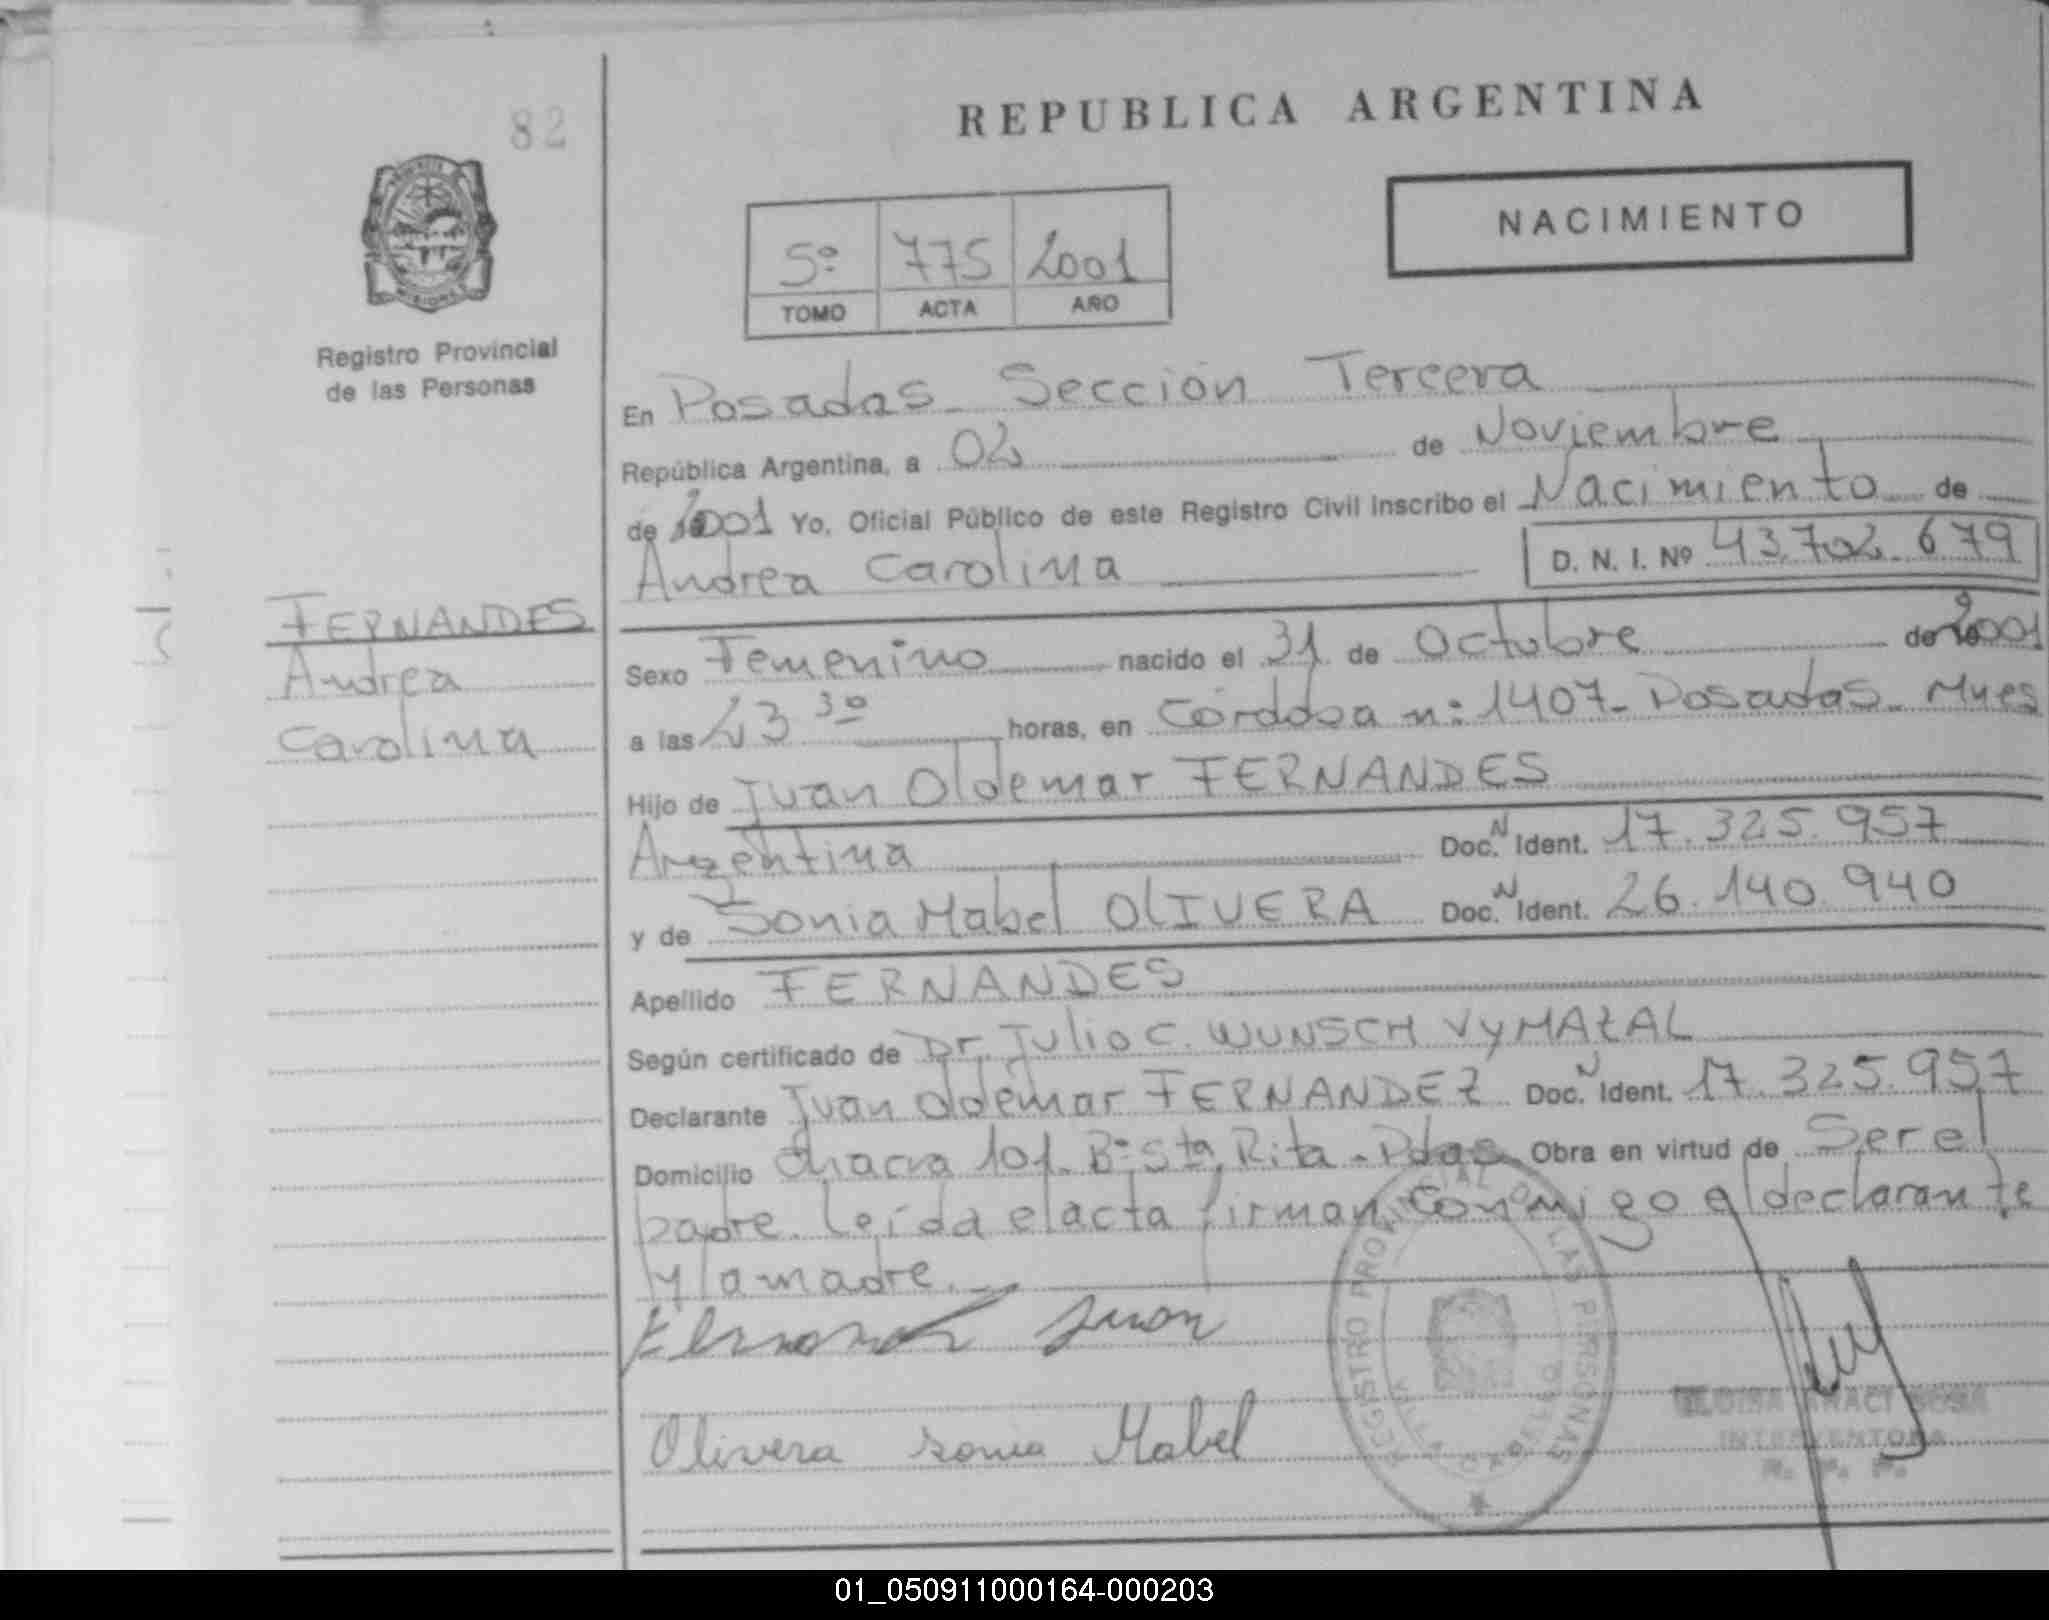 82
REPUBLICA ARGENTINA
NACIMIENTO
5º 775 2001
TOMO ACTA AÑO
Registro Provincial
de las Personas
En Posadas - Sección Tercera
República Argentina, a 02 de Noviembre
de 2001 Yo, Oficial Público de este Registro Civil inscribo el Nacimiento de
Andrea Carolina D. N. I. Nº 43.702.679
FERNANDES
Andrea
Carolina
Sexo Femenino nacido el 31 de Octubre de 2001
a las 23 30 horas, en Córdoba nº 1407 - Posadas - Mnes
Hijo de Juan Oldemar FERNANDES
Argentina Doc. N Ident. 17.325.957
y de Sonia Mabel OLIVERA Doc. N Ident. 26.140.940
Apellido FERNANDES
Según certificado de Dr. Julio C. WUNSCH VYMAZAL
Declarante Juan Oldemar FERNANDEZ Doc. N Ident. 17.325.957
Domicilio Chacra 101 - Bº Sta. Rita - Pdas Obra en virtud de Ser el
padre. Leída el acta firman conmigo el declarante
y la madre.
Juan
Olivera Sonia Mabel
REGISTRO PROVINCIAL DE LAS PERSONAS
ARACI SOSA
INTERVENTORA
R. P. P.
01_050911000164-000203